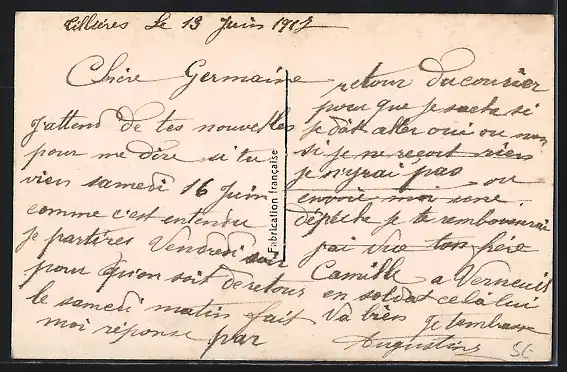 Tillières Le 13 Juin 1917
Chère Germaine
J'attend de tes nouvelles
pour me dire si tu
viens samedi 16 Juin
comme c'est entendu
je partires Vendredi soir
pour qu'on soit de retour
le samedi matin fait
moi réponse par
Fabrication française
retour du courier
pour que je sache si
je doit aller oui ou non
si je ne reçoit rien
je n'yrai pas ou
envoie moi une
dépêche je te rembourserai
j'ai vue ton frère
Camille a Verneuil
en soldat cela lui
va bien Je t'embrasse
Augustine
SG